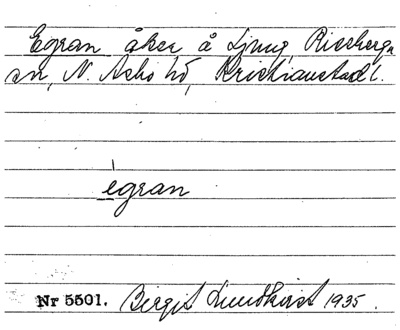 Egran åker å Ljung, Riseberga
sn, N. Åsbo hd, Kristianstad l.
ègran
Nr 5501. Birgit Lundkvist 1935.